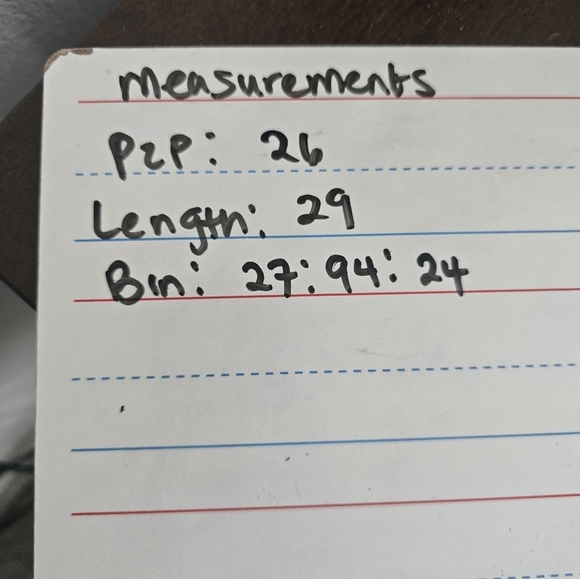 measurements
P2P: 26
Length: 29
Bin: 27:94:24